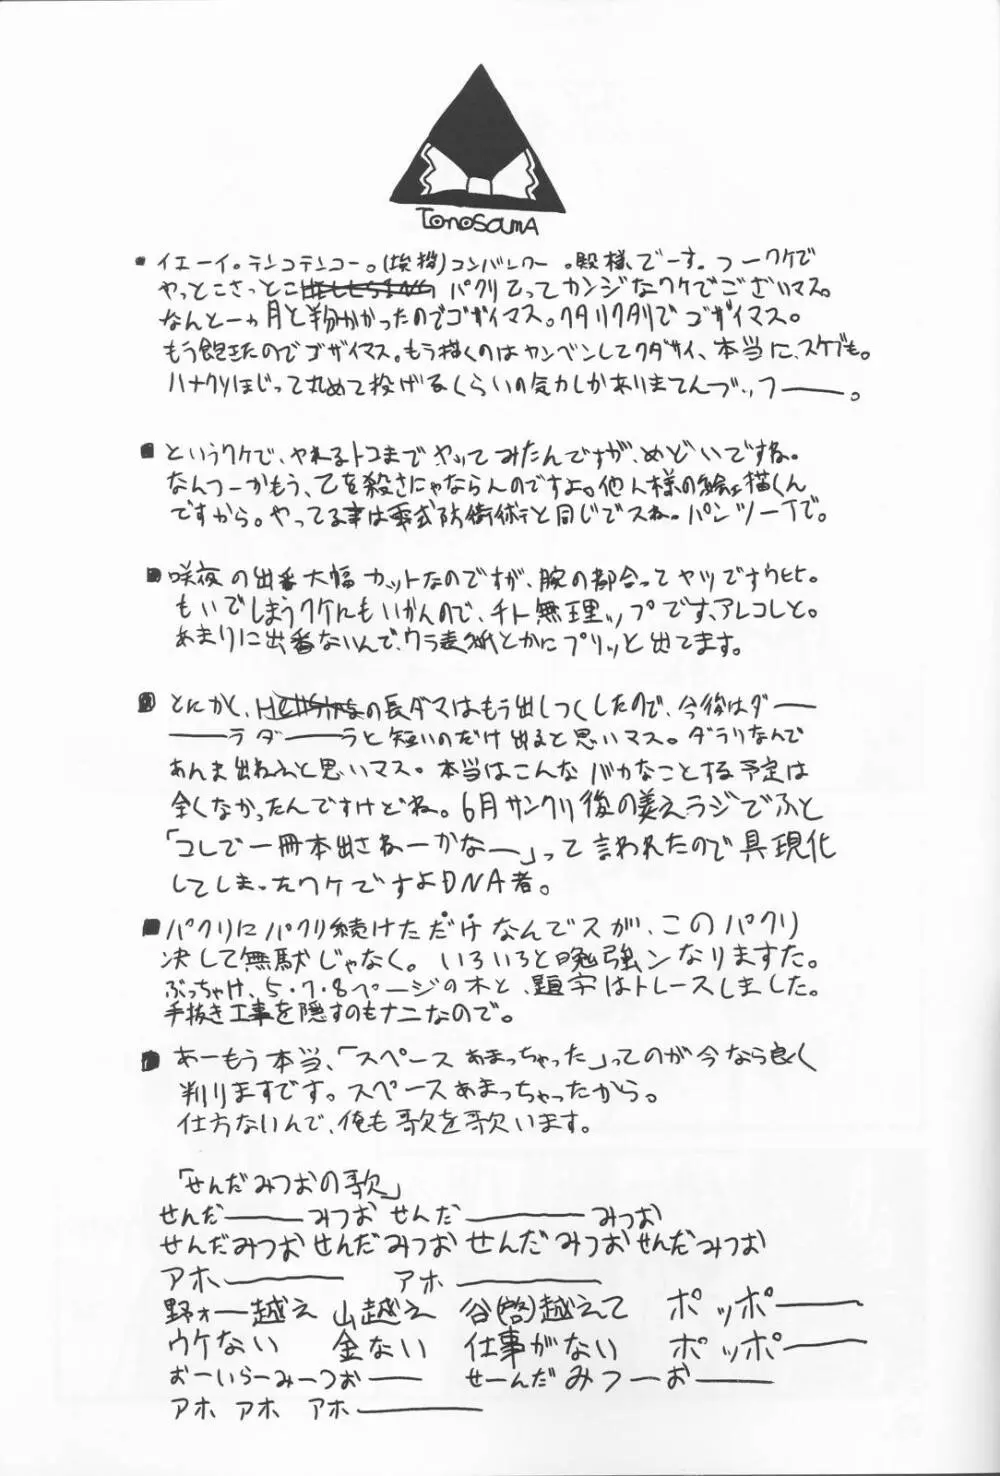 TonosamA
・イエーイ。テンコテンコー。(挨拶)コンバンワー。殿様でーす。つーワケで
やっとこさっとこHELLSING パクリてってカンジなワケでございマス。
なんと一ヵ月と半分かかったのでゴザイマス。クタリクタリでゴザイマス。
もう飽きたのでゴザイマス。もう描くのはカンベンしてクダサイ、本当に、スケブも。
ハナクソほじって丸めて投げるくらいの気力しかありませんブッフ――。
■というワケで、やれるトコまでやってみたんですが、めどいですね。
なんつーかもう、己を殺さにゃならんのですよ。他人様の絵描くん
ですから。やってる事は零式防衛術と同じでスねー パンツ一丁で。
■咲夜の出番大幅カットなのですが、腕の都合ってヤツですウヒヒ。
もいでしまうワケにもいかんので、チト無理ップです、アレコレと。
あまりに出番ないんで、ウラ表紙とかにプリッと出てます。
■とにかく、の長ダマはもう出しつくしたので、今後はダ――
――ラダ――ラと短いのだけ出ると思いマス。ダラリなんで
あんま出ねぇと思いマス。本当はこんなバカなことする予定は
全くなかったんですけどね。6月サンクリ後の美えラジでふと
「コレで一冊本出さねーかなー」って言われたので具現化
してしまったワケですよDNA者。
■パクリにパクリ続けただけなんでスが、このパクリ
決して無駄じゃなく。いろいろと勉強ンなりますた。
ぶっちゃけ、5・7・8ページの木と、題字はトレースしました。
手抜き工事を隠すのもナニなので。
■あーもう本当、「スペースあまっちゃった」ってのが今なら良く
判りますです。スペースあまっちゃったから。
仕方ないんで、俺も歌を歌います。
「せんだみつおの歌」
せんだ――みつお せんだ――みつお
せんだみつお せんだみつお せんだみつお せんだみつお
アホ―― アホ――
野ォー越え 山越え 谷(啓)越えて ポッポ――
ウケない 金ない 仕事がない ポッポ――
おーいらーみーつおー― せーんだみつーお――
アホ アホ アホ――